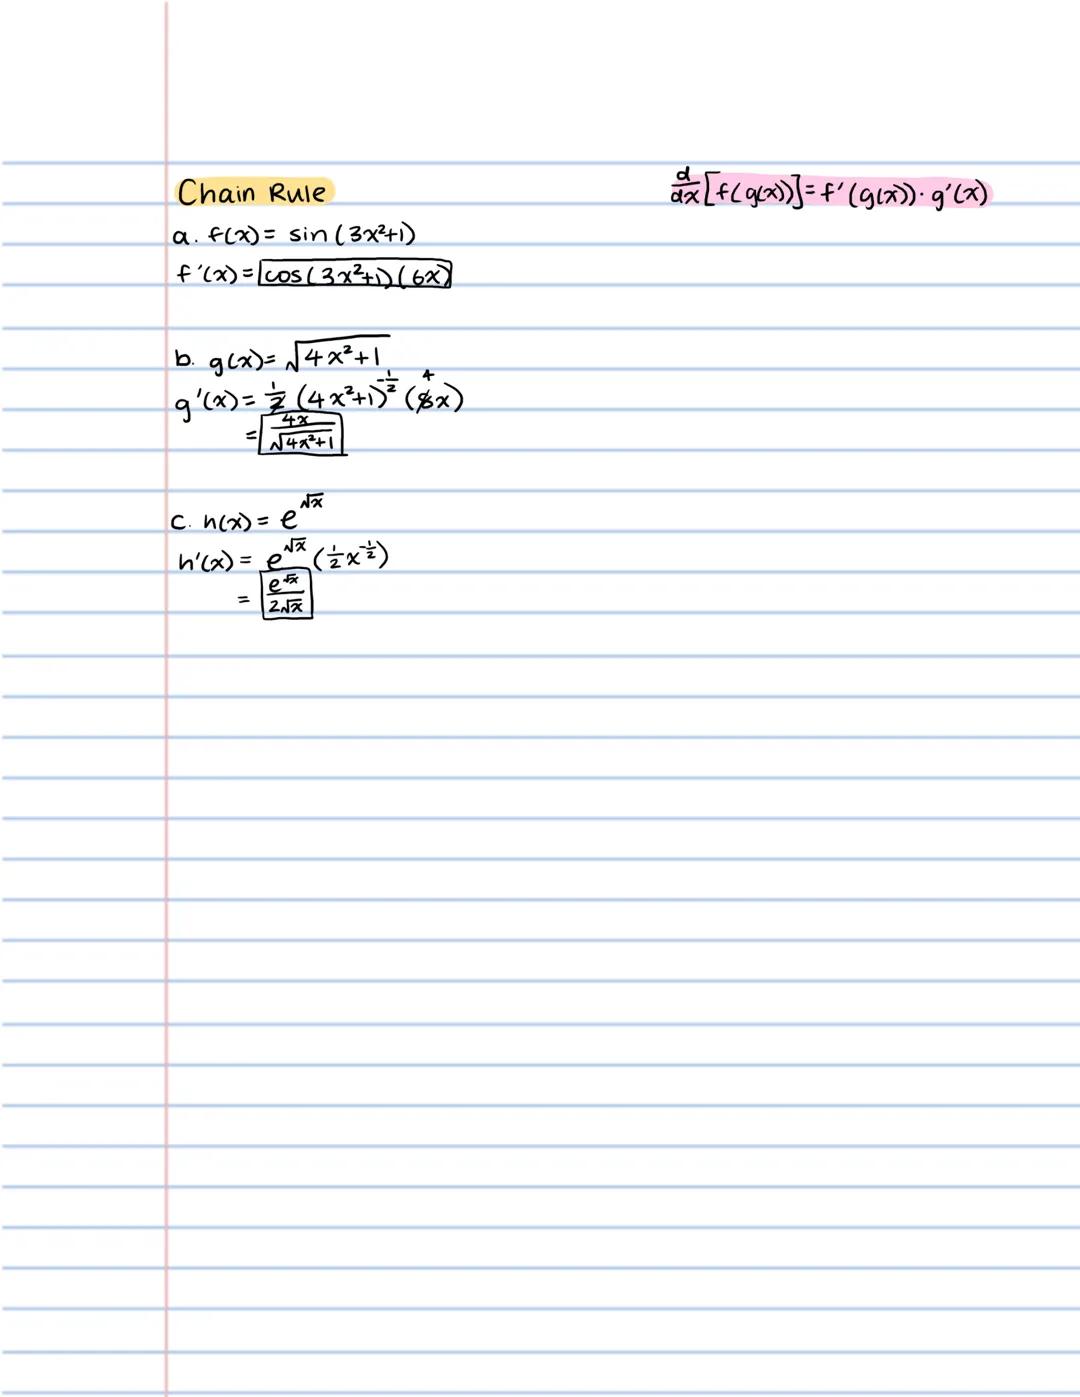 Chain Rule
d/dx [f(g(x))] = f'(g(x)) · g'(x)
a. f(x) = sin(3x²+1)
f'(x) = cos(3x²+1)(6x)
b. g(x) = √(4x²+1)
g'(x) = 1/2 (4x²+1)^(-1/2) (8x) 4
= 4x/√(4x²+1)
c. h(x) = e^√x
h'(x) = e^√x (1/2 x^(-1/2))
= e^√x/2√x